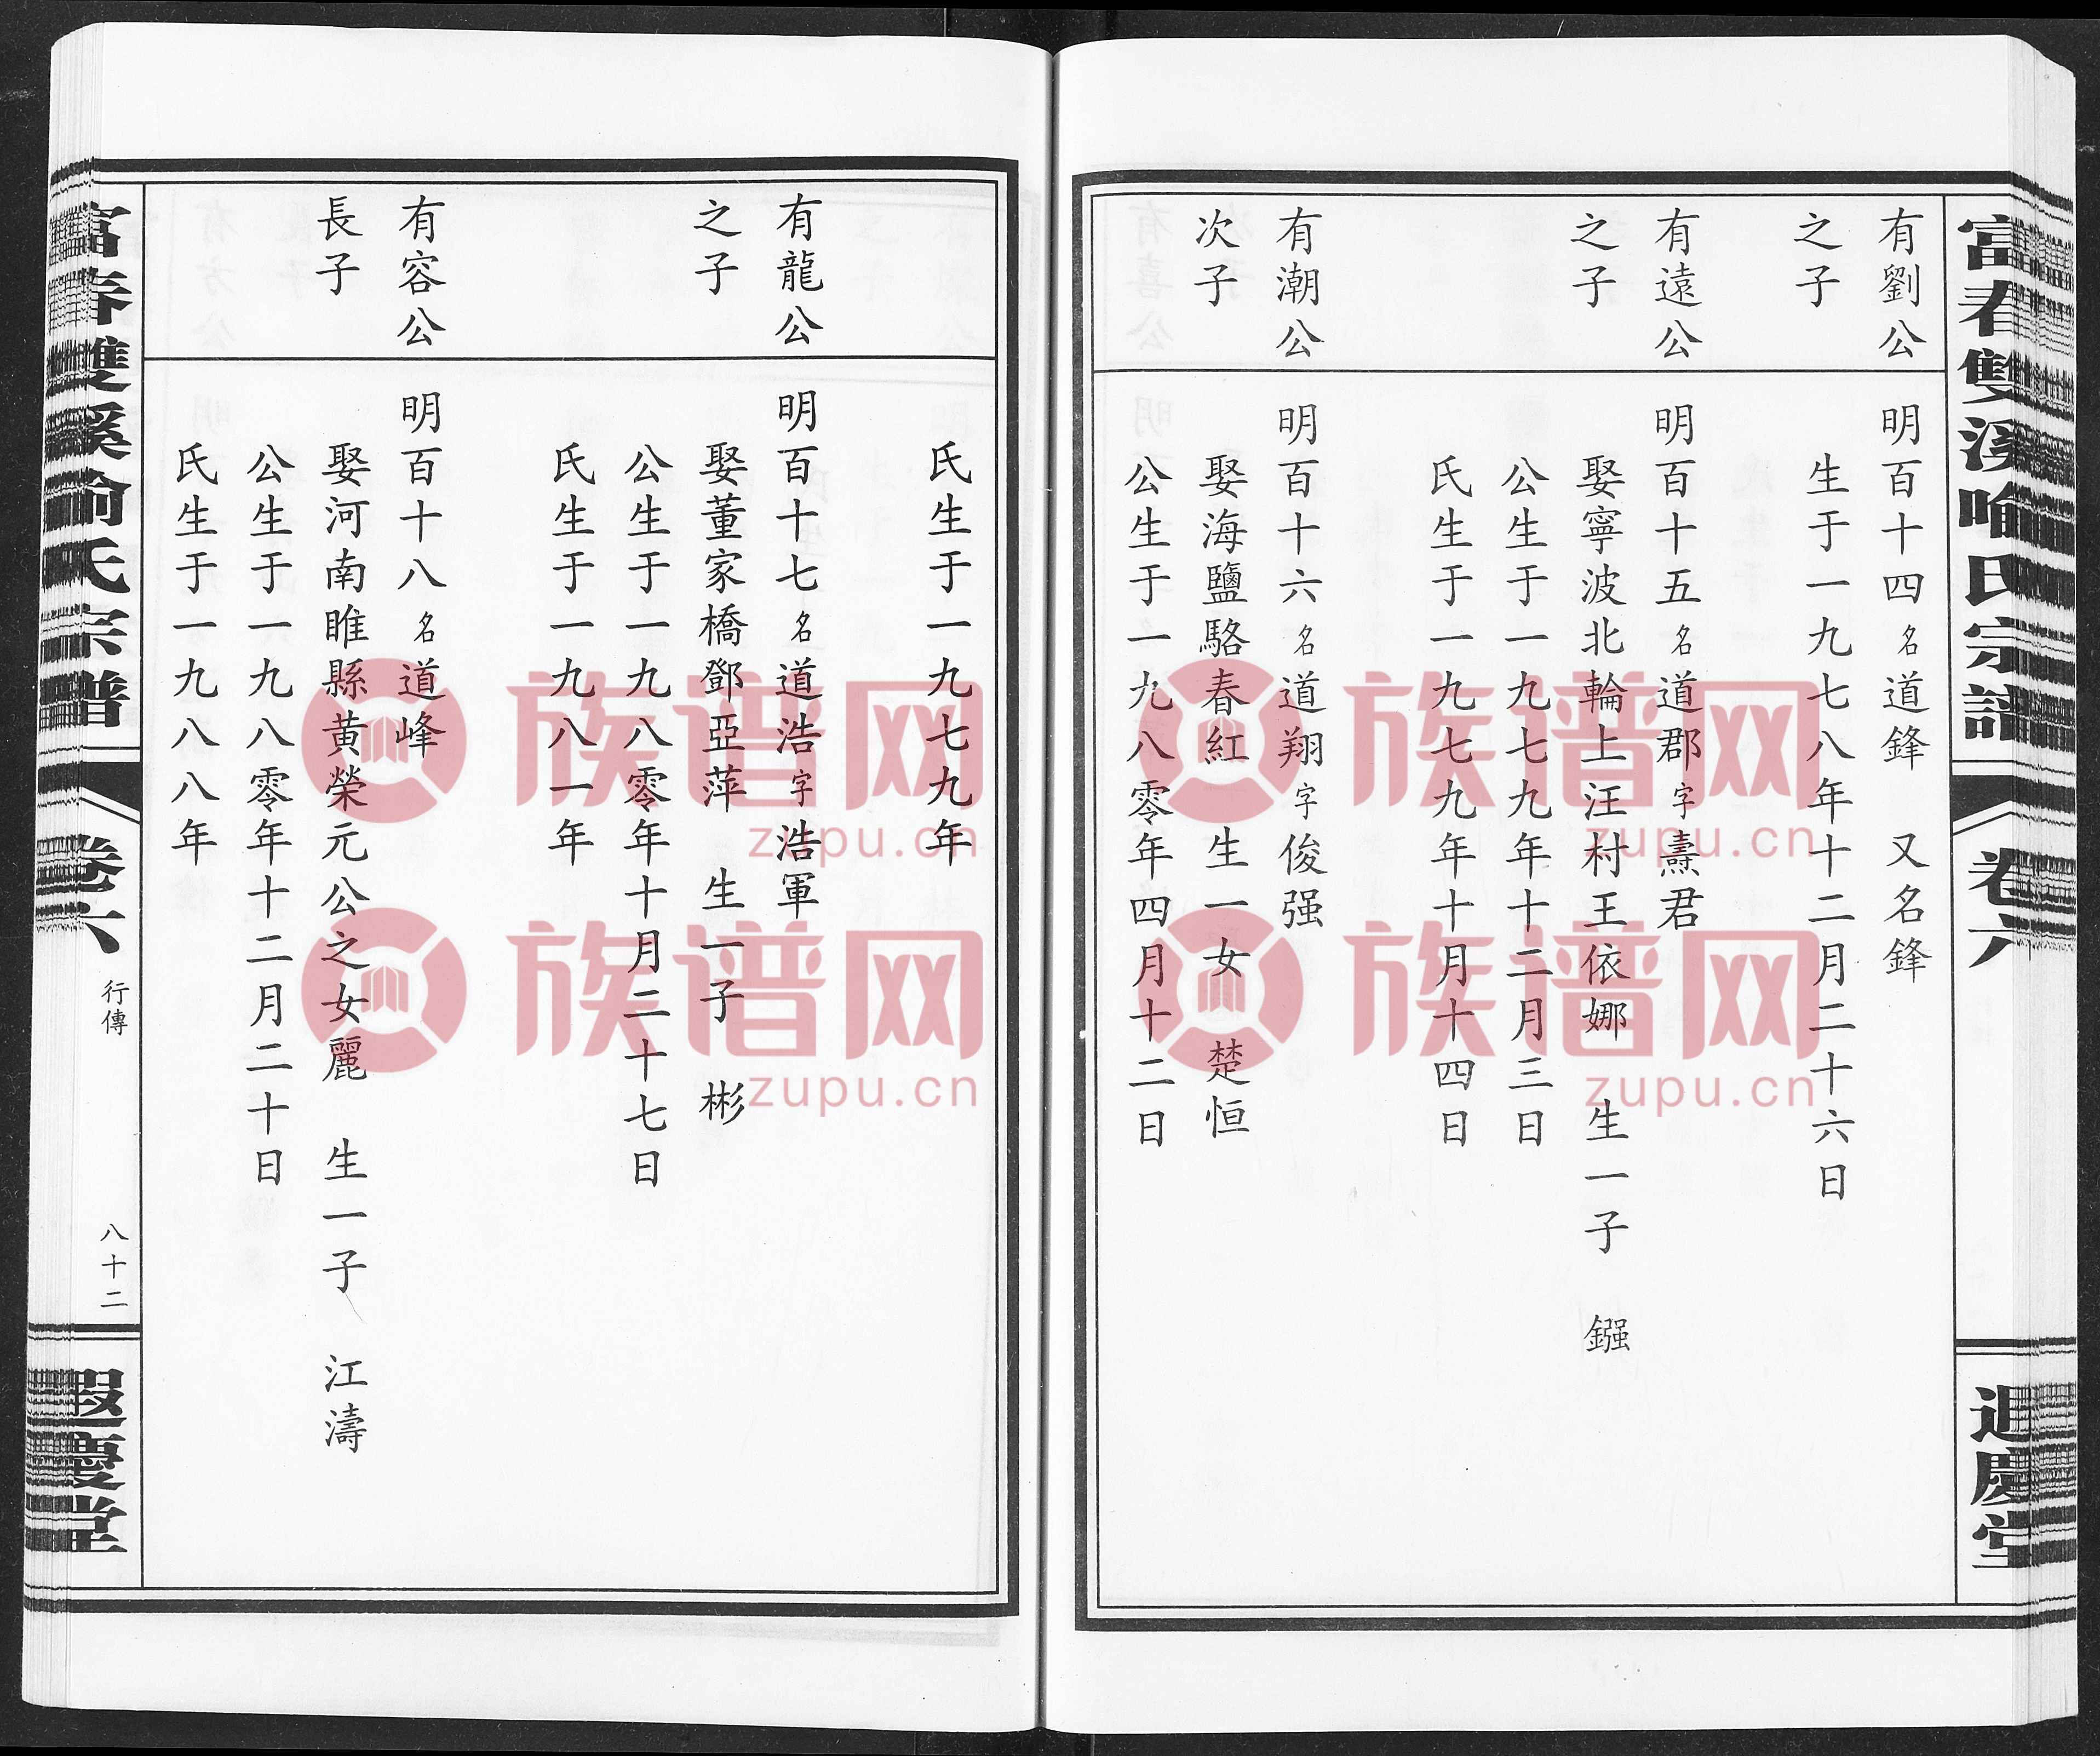 富春雙溪喻氏宗譜
卷六
遐慶堂
有劉公
之子
明百十四名道鋒 又名鋒
生于一九七八年十二月二十六日
有遠公
之子
明百十五名道郡字燾君
娶寧波北輪上汪村王依娜 生一子 鏹
公生于一九七九年十二月三日
氏生于一九七九年十月十四日
有潮公
次子
明百十六名道翔字俊强
娶海鹽駱春紅 生一女 楚恒
公生于一九八零年四月十二日
氏生于一九七九年
有龍公
之子
明百十七名道浩字浩軍
娶董家橋鄧亞萍 生一子 彬
公生于一九八零年十月二十七日
氏生于一九八一年
有容公
長子
明百十八名道峰
娶河南睢縣黄榮元公之女麗 生一子 江濤
公生于一九八零年十二月二十日
氏生于一九八八年
富春雙溪喻氏宗譜
卷六
行傳
八十二
遐慶堂
族谱网
zupu.cn
族谱网
zupu.cn
族谱网
zupu.cn
族谱网
zupu.cn